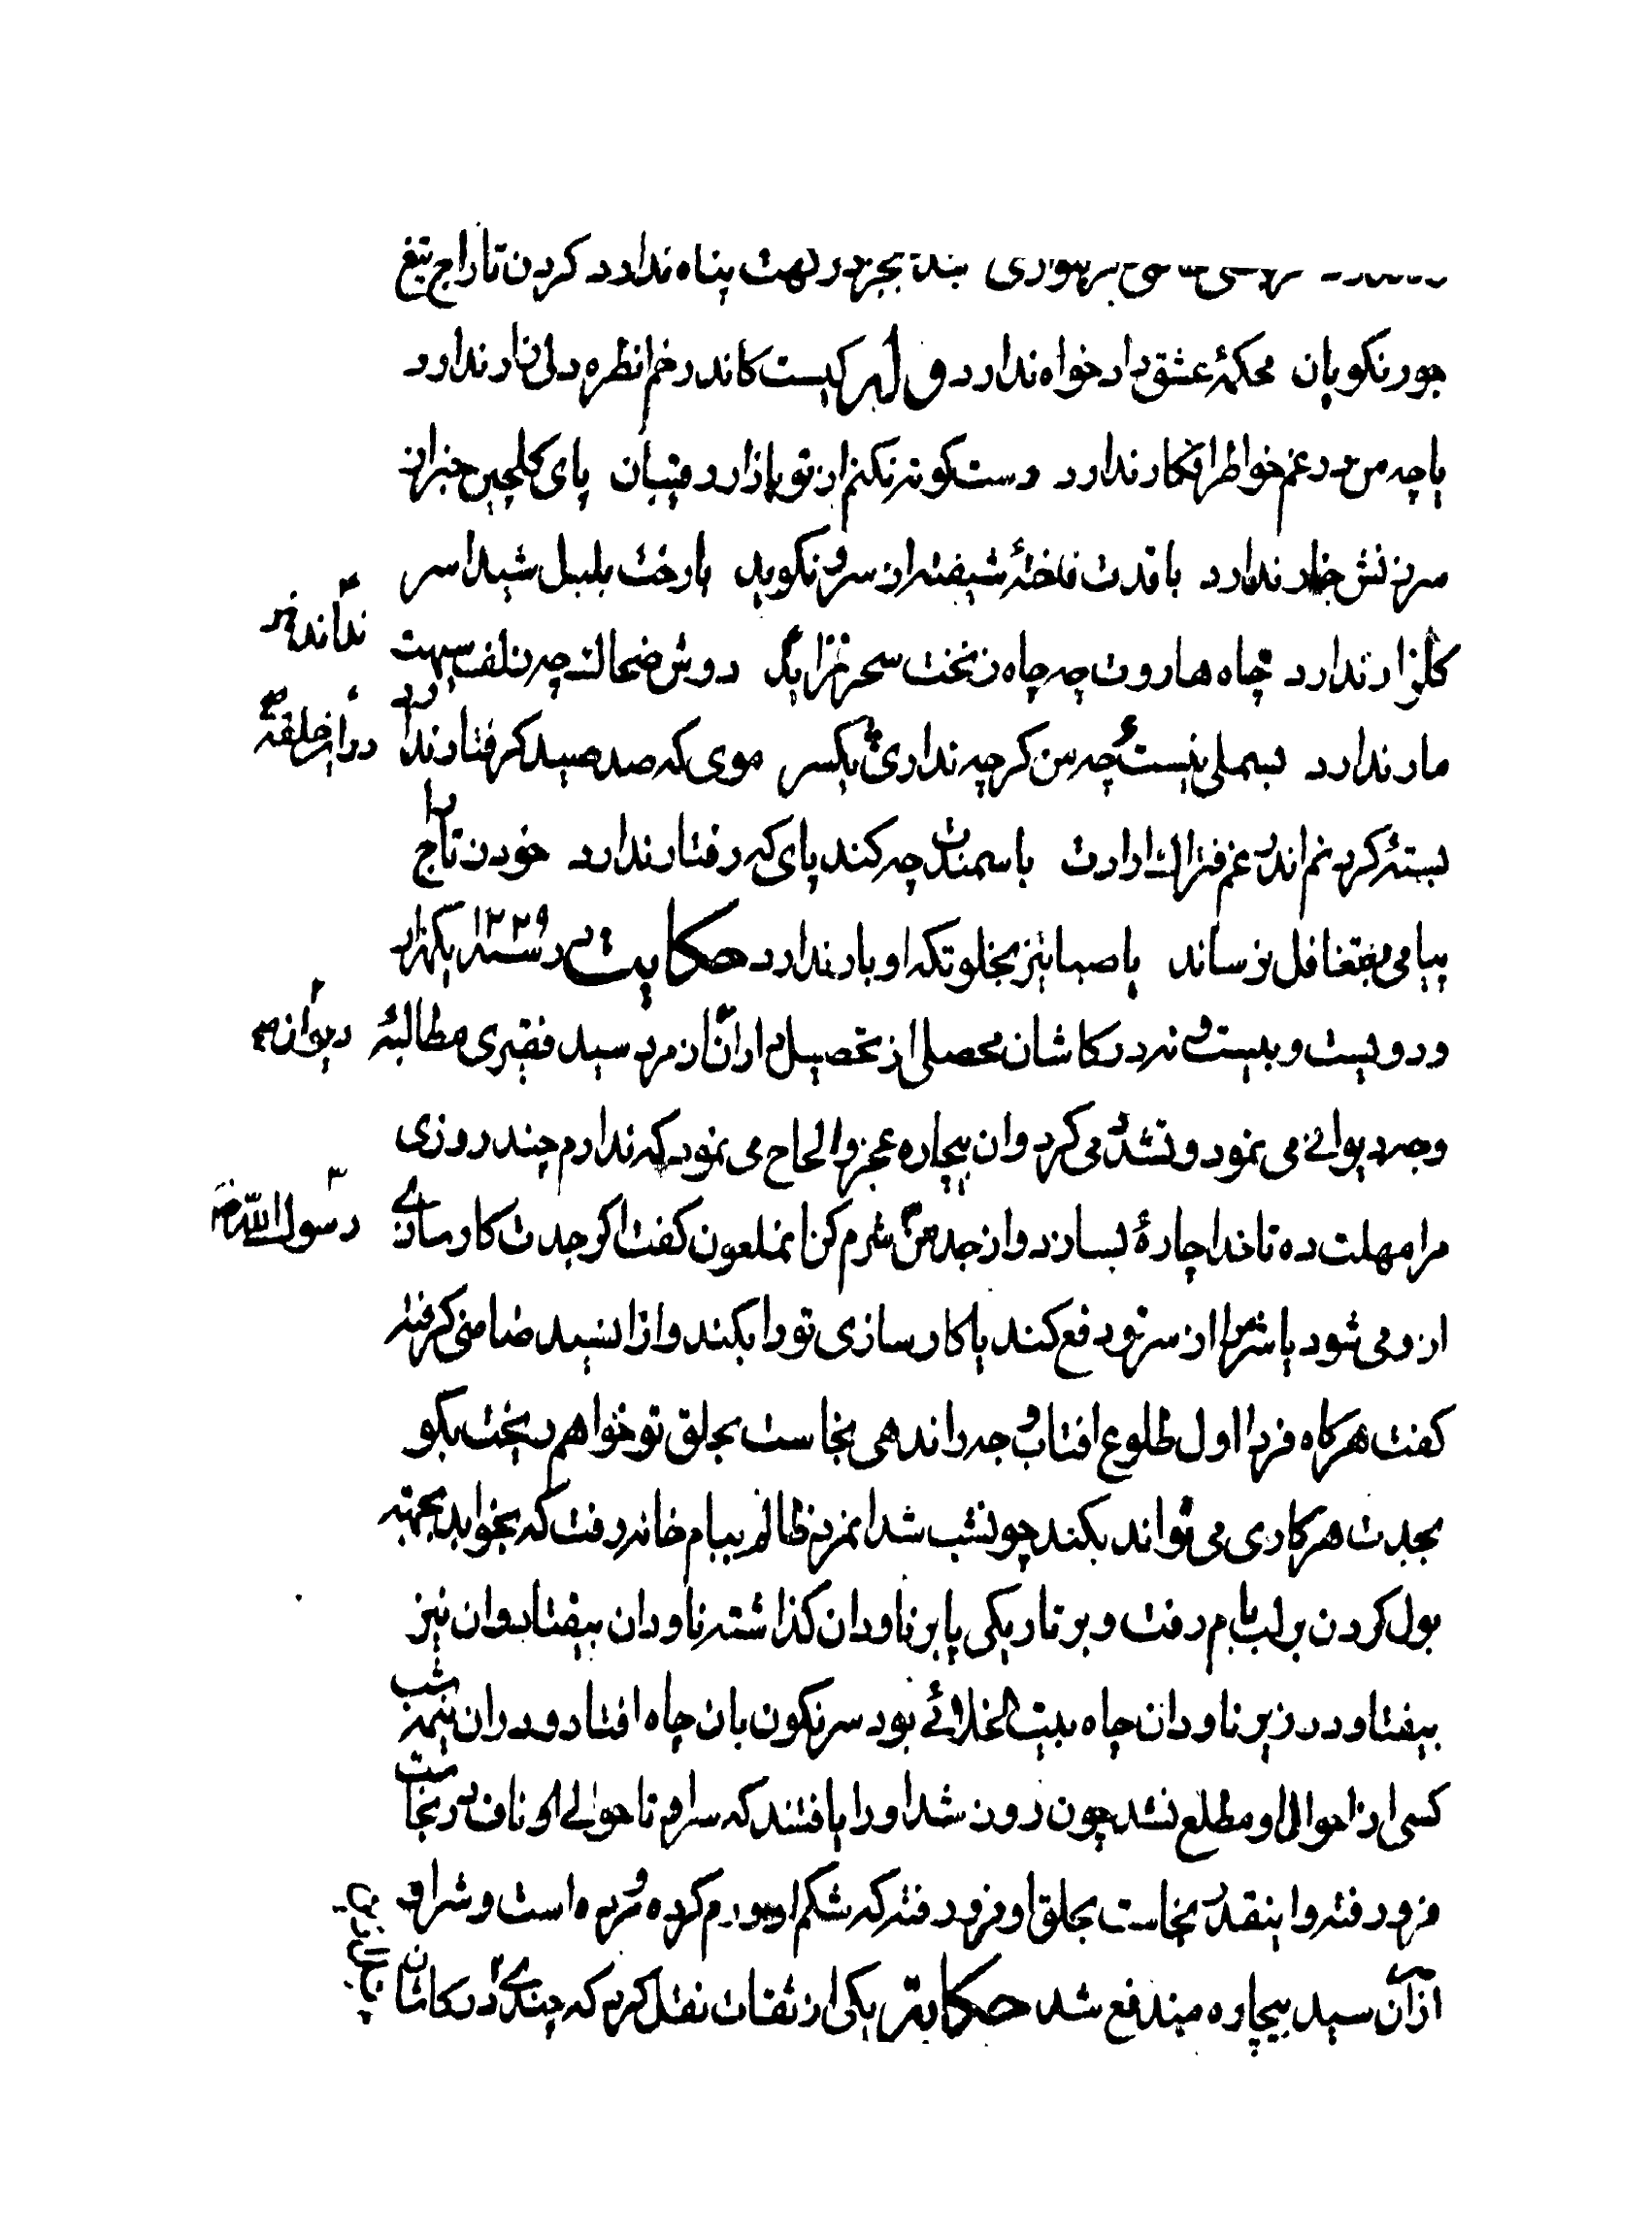 بنده بجز درگهت پناه ندارد کردن تاراج تیغ
جور نکویان محکمهٔ عشق داد خواه ندارد و له کیست کاندر خم انطره دلی زار ندارد
یا چه من در غم خواطر افکار ندارد دست کوته نکنم از تو بازار رقیبان پای گلچین خبر از
سرزنش خار ندارد با قدت فاختهٔ شیفته از سرو نکوید با رخت بلبل شیدا سر
کلزار ندارد چاه هاروت چه چاه زنخت سحر نزاید دوش ضحاک چه زلف سیهت
مار ندارد بسملی نیست چه من کرچه نداری یکسر موی که صد صید کرفتار ندارد
بستهٔ کردنم اندر غم فتراک ارادت با سمندت چه کند پای که رفتار ندارد خودن تاراج
پیامی بتغافل نرساند یا صبا نیز بخلوتکه او بار ندارد حکایت در سنه ۱۲۲۹ یکهزار
و دویست و بیست و نه در کاشان محصلی از تحصیلداران از مرد سید فقیری مطالبهٔ
وجه دیوانی می نمود و تشدد می کرد و ان بیچاره عجز و الحاح می نمود که ندارم چند روزی
مرا مهلت ده تا خدا چارهٔ بسازد و از جد من شرم کن انملعون کفت اکر جدت کارسازی
از و می شود یا شر مرا از سر تو دفع کند یا کارسازی تو را بکند و از انسید ضامنی کرفته
کفت هرکاه فردا اول طلوع افتاب وجه را ندهی نجاست بحلق تو خواهم ریخت بکو
بجدت هر کاری می تواند بکند چونشب شد انمرد ظالم ببام خانه رفت که بخوابد بجهته
بول کردن بر لب بام رفت و بر تاریکی پا بر ناودان کذاشته ناودان بیفتاد و ان نیز
بیفتاد و در زیر ناودان چاه بیت الخلائی بود سرنکون بان چاه افتاد و در ان نیمه شب
کسی از احوال او مطلع نشد چون روز شد او را یافتند که سر او تا حوالی ناف در نجاست
فرو رفته و اینقدر نجاست بحلق او فرو رفته که شکم او ورم کرده و مرده است و شر او
از آن سید بیچاره مندفع شد حکایة یکی از ثقات نقل کرد که چندی در کاشان